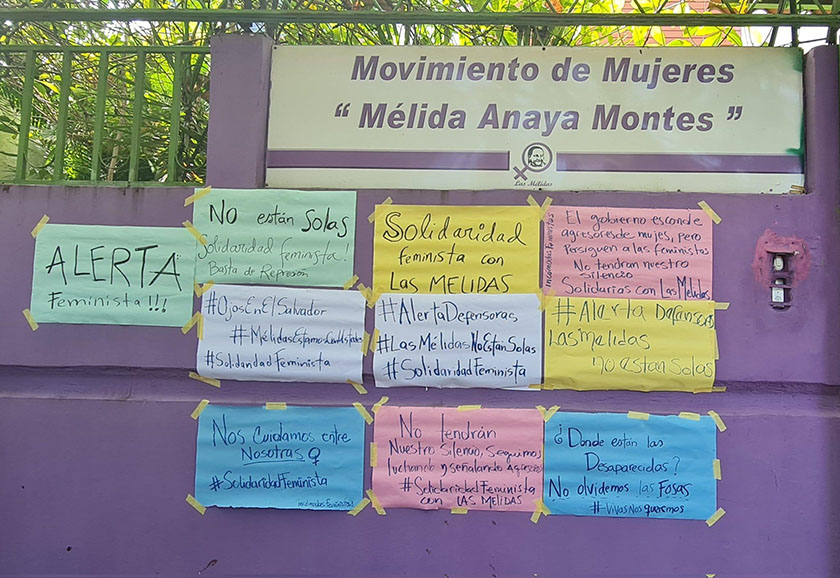 Movimiento de Mujeres
“ Mélida Anaya Montes ”
Las Mélidas
ALERTA
Feminista!!!
No están Solas
Solidaridad feminista!
Basta de Represión
Solidaridad
feminista con
LAS MELIDAS
El gobierno esconde
agresores de mujes, pero
Persiguen a las feministas
No tendran nuestro
Silencio
Solidarios con Las Mélidas
#OjosEnElSalvador
#SolidaridadFeminista
#AlertaDefensoras
#Las MélidasNoEstanSolas
#SolidaridadFeminista
#Alerta Defensoras
Las melidas
no estan Solas
Nos Cuidamos entre
Nosotras ♀
#SolidaridadFeminista
No tendrán
Nuestro Silencio, Seguimos
luchando y señalando
#SolidaridadFeminista
con LAS MELIDAS
¿Donde están las
Desaparecidas?
No olvidemos las Fosas
#VivasNosqueremos